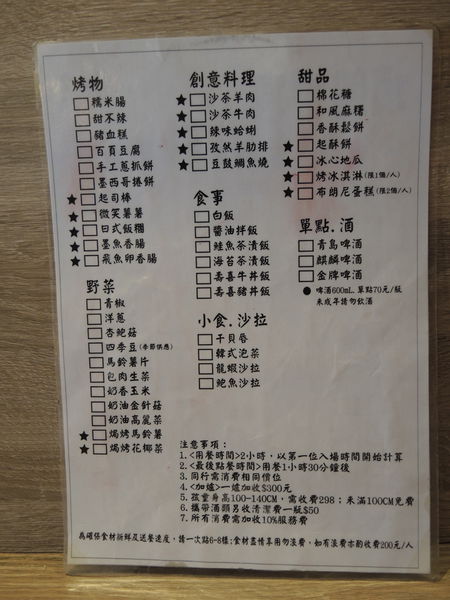 烤物
糯米腸
甜不辣
豬血糕
百頁豆腐
手工蔥抓餅
墨西哥捲餅
★ 起司棒
★ 微笑薯薯
★ 日式飯糰
★ 墨魚香腸
★ 飛魚卵香腸
野菜
青椒
洋蔥
杏鮑菇
四季豆(季節供應)
馬鈴薯片
包肉生菜
奶香玉米
奶油金針菇
奶油高麗菜
★ 焗烤馬鈴薯
★ 焗烤花椰菜
創意料理
★ 沙茶羊肉
★ 沙茶牛肉
★ 辣味蛤蜊
★ 孜然羊肋排
★ 豆鼓鯛魚燒
食事
白飯
醬油拌飯
鮭魚茶漬飯
海苔茶漬飯
壽喜牛丼飯
壽喜豬丼飯
小食.沙拉
干貝唇
韓式泡菜
龍蝦沙拉
鮑魚沙拉
甜品
棉花糖
和風麻糬
香酥鬆餅
★ 起酥餅
★ 冰心地瓜
★ 烤冰淇淋(限1個/人)
★ 布朗尼蛋糕(限2個/人)
單點.酒
青島啤酒
麒麟啤酒
金牌啤酒
● 啤酒600mL.單點70元/瓶
未成年請勿飲酒
注意事項：
1.<用餐時間>2小時，以第一位入場時間開始計算
2.<最後點餐時間>用餐1小時30分鐘後
3.同行需消費相同價位
4.<加爐>一爐加收$300元
5.孩童身高100-140CM，需收費298；未滿100CM免費
6.攜帶酒類另收清潔費一瓶$50
7.所有消費需加收10%服務費
為確保食材新鮮及送餐速度，請一次點6-8樣;食材盡情享用勿浪費，如有浪費亦酌收費200元/人